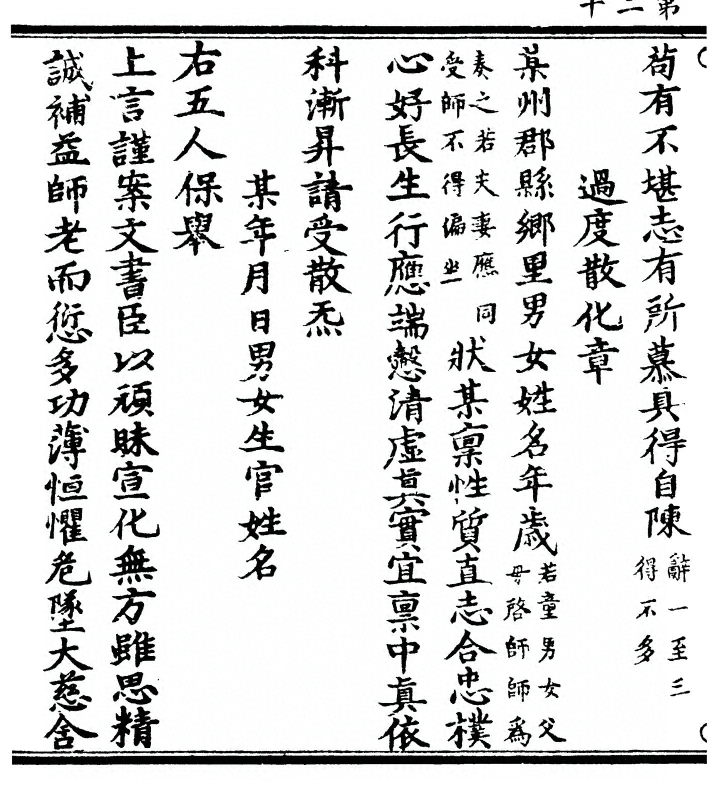 苟有不堪志有所慕具得自陳辭一至三得不多
過度散化章
某州郡縣鄉里男女姓名年歲若童男女父母啓師師爲
奏之若夫妻應同受師不得偏狀某稟性質直志合忠樸
心好長生行應端慤清虛真實宜稟中真依
科漸昇請受散炁
某年月日男女生官姓名
右五人保舉
上言謹案文書臣以頑昧宣化無方雖思精
誠補益師老而愆多功薄恒懼危墜大慈舍